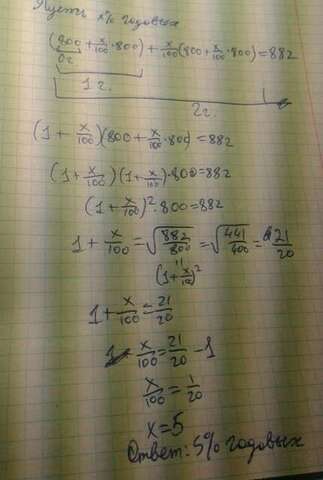 Пусть x% годовых
(800 + x/100 · 800) + x/100 (800 + x/100 · 800) = 882
0г.
1 г.
2г.
(1 + x/100)(800 + x/100 · 800) = 882
(1 + x/100)(1 + x/100) · 800 = 882
(1 + x/100)² · 800 = 882
1 + x/100 = √(882/800) = √(441/400) = 21/20
(1 + x/100)²
1 + x/100 = 21/20
x/100 = 21/20 - 1
x/100 = 1/20
x = 5
Ответ: 5% годовых